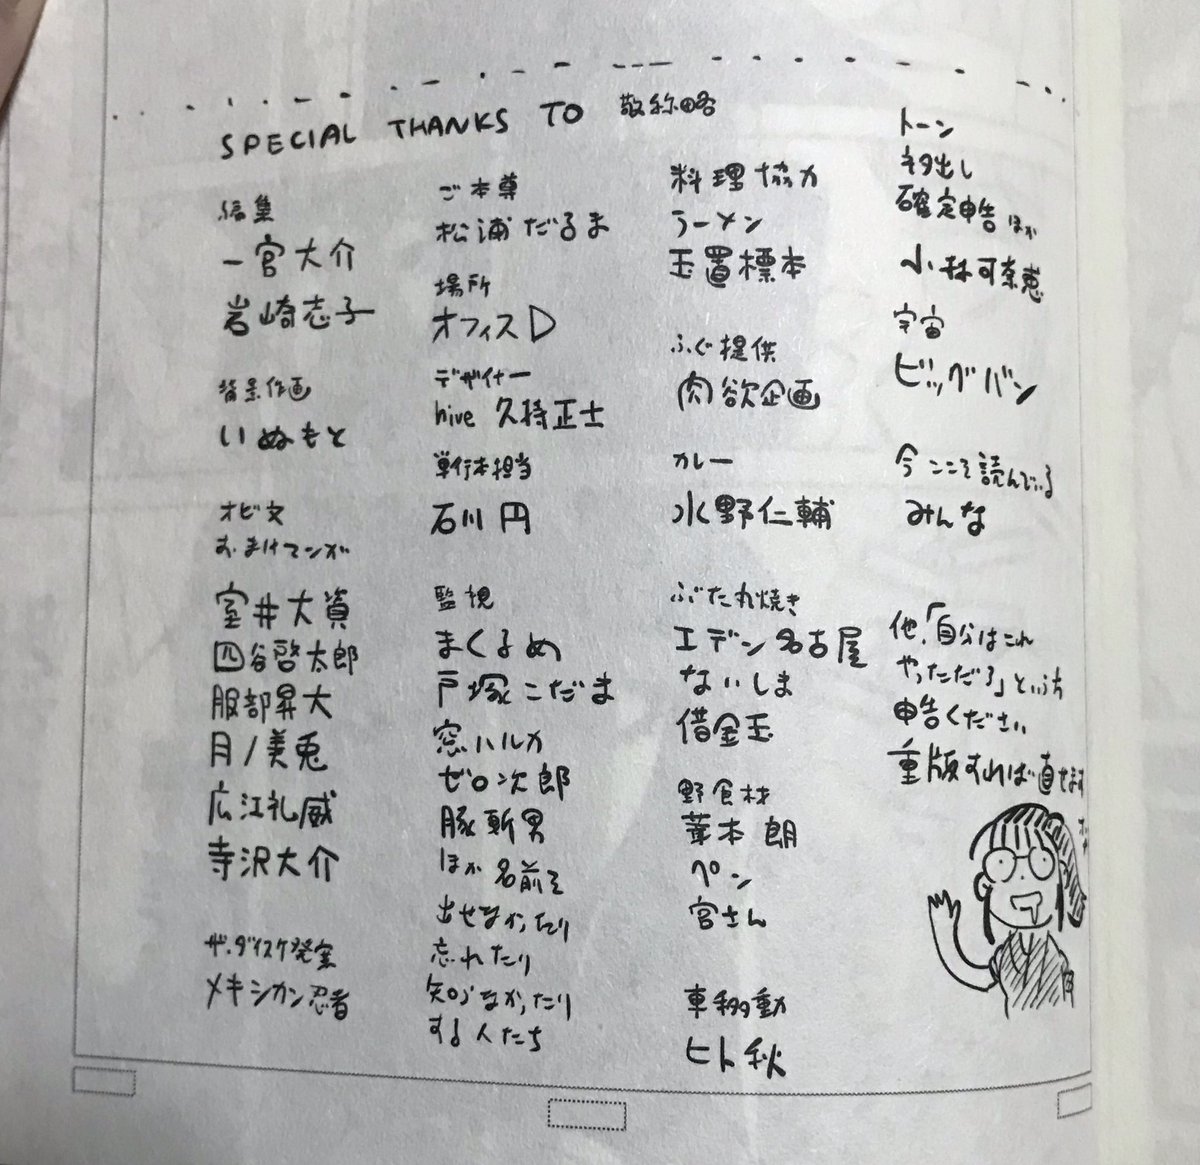 SPECIAL THANKS TO 敬称略
編集
一宮大介
岩崎志子
背景作画
いぬもと
オビ文
おまけマンガ
室井大資
四谷啓太郎
服部昇大
月ノ美兎
広江礼威
寺沢大介
ザ・ダイスケ発案
メキシカン忍者
ご本尊
松浦だるま
場所
オフィスD
デザイナー
hive 久持正士
単行本担当
石川円
監視
まくるめ
戸塚こだま
窓ハルカ
ゼロ次郎
豚斬男
ほか名前を
出せなかったり
忘れたり
知らなかったり
する人たち
料理協力
ラーメン
玉置標本
ふぐ提供
肉欲企画
カレー
水野仁輔
ぶた丸焼き
エデン名古屋
ないしま
借金玉
野食材
茸本朗
ペン
宮さん
車移動
ヒト秋
トーン
ネタ出し
確定申告ほか
小林可奈恵
宇宙
ビッグバン
今ここを読んでいる
みんな
他、「自分はこれ
やっただろ」という方
申告ください
重版すれば直せます